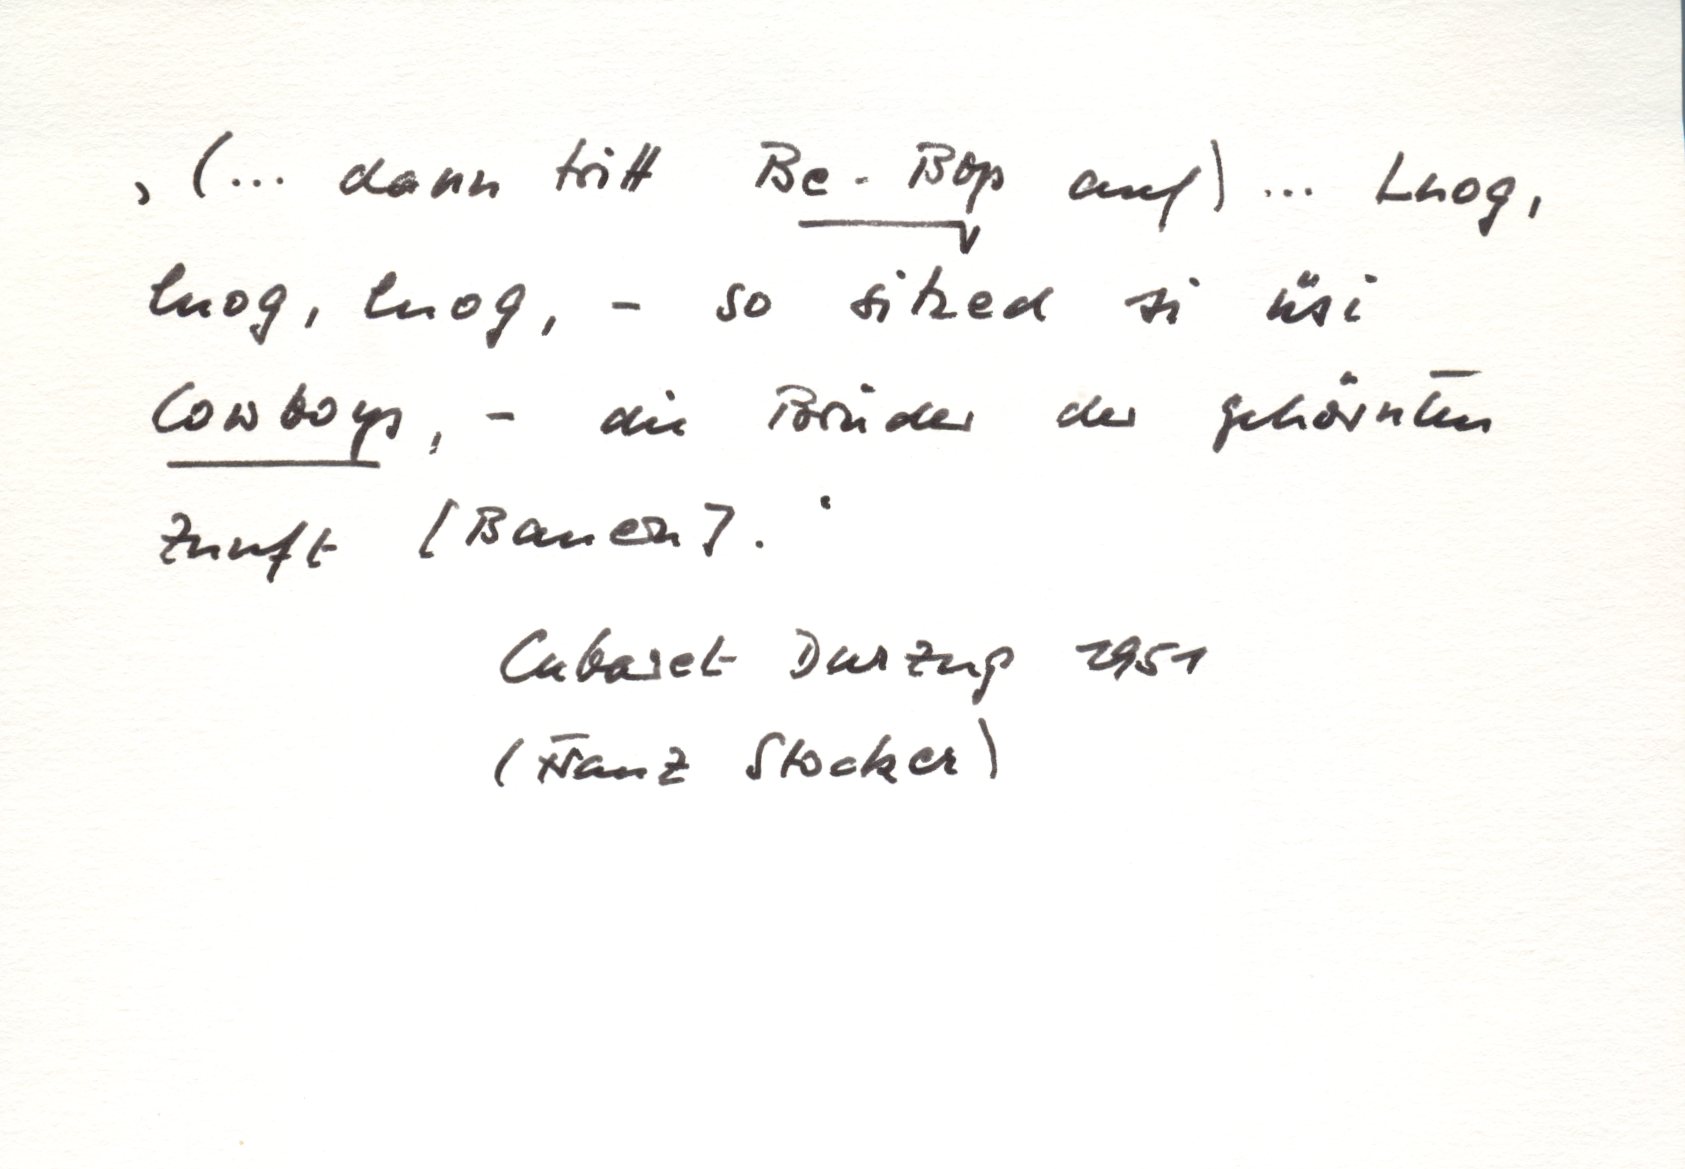 ‚(... dann tritt Be-Bop auf) ... Luog,
luog, luog, – so sitzed si üsi
Cowboys, – die Brüder der gehörnten
Zunft [Bauern].‘
Cabaret Durzug 1951
(Franz Stocker)